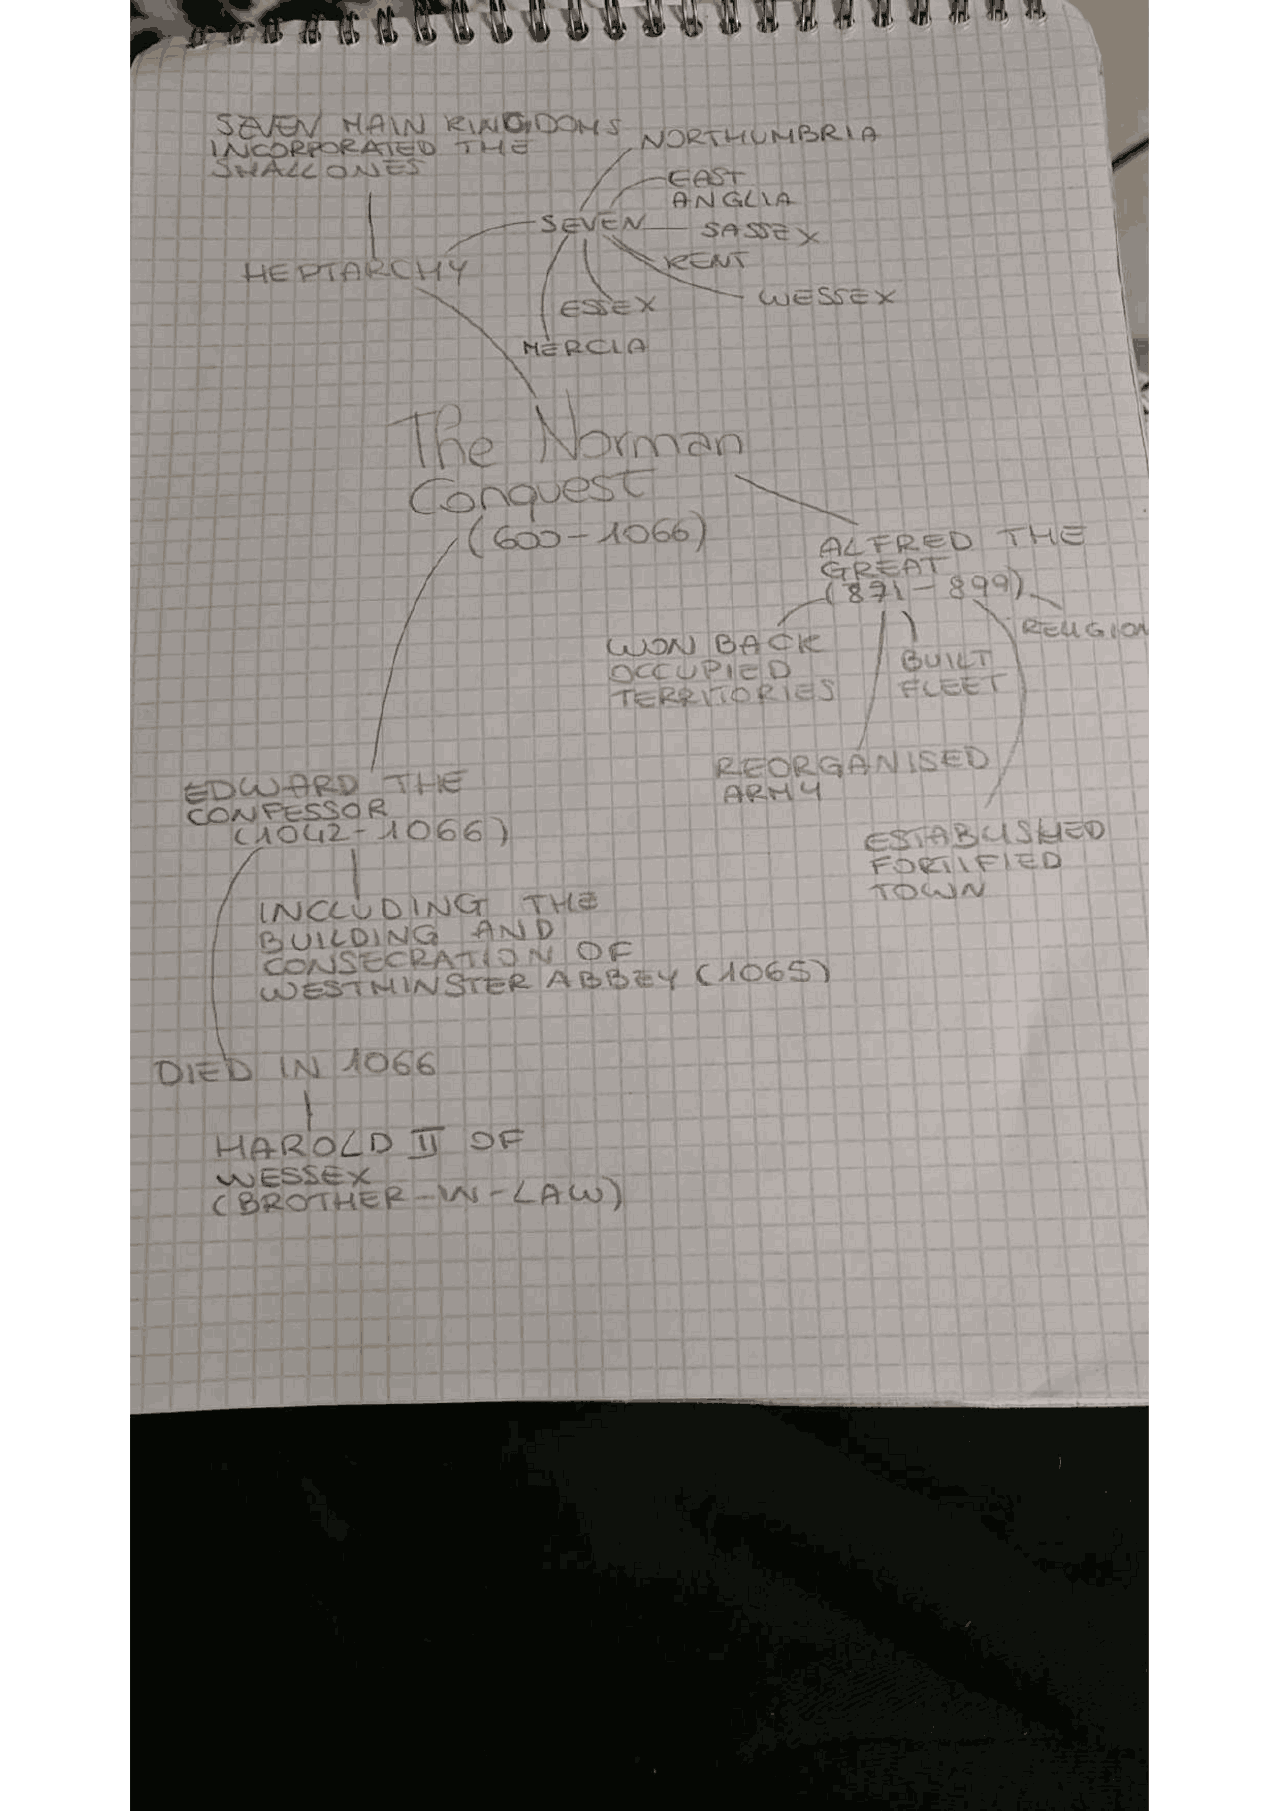 SEVEN MAIN KINGDOMS
INCORPORATED THE
SMALL ONES
NORTHUMBRIA
EAST
ANGLIA
SEVEN
SASSEX
KENT
HEPTARCHY
WESSEX
ESSEX
MERCIA
The Norman
Conquest
(600-1066)
ALFRED THE
GREAT
(871-899)
RELIGION
WON BACK
OCCUPIED
TERRITORIES
BUILT
FLEET
REORGANISED
ARMY
ESTABLISHED
FORTIFIED
TOWN
EDWARD THE
CONFESSOR
(1042-1066)
INCLUDING THE
BUILDING AND
CONSECRATION OF
WESTMINSTER ABBEY (1065)
DIED IN 1066
HAROLD II OF
WESSEX
(BROTHER-IN-LAW)